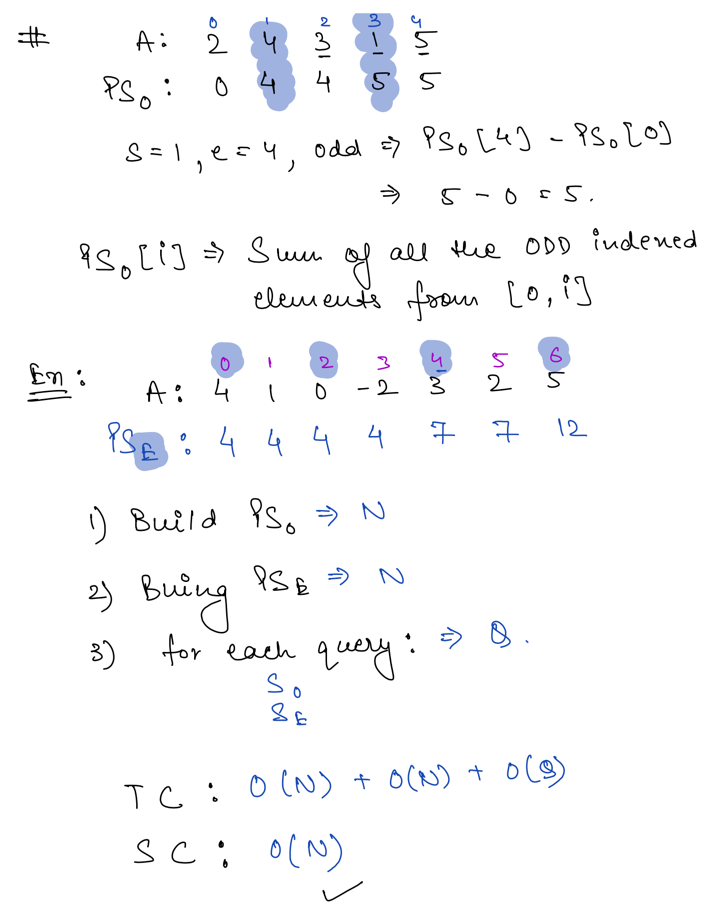 0 1 2 3 4
# A: 2 4 3 1 5
PSₒ: 0 4 4 5 5
S=1, e=4, odd ⇒ PSₒ[4] - PSₒ[0]
⇒ 5 - 0 = 5.
PSₒ[i] ⇒ Sum of all the ODD indexed
elements from [0, i]
0 1 2 3 4 5 6
Ex: A: 4 1 0 -2 3 2 5
PS_E: 4 4 4 4 7 7 12
1) Build PSₒ ⇒ N
2) Buing PS_E ⇒ N
3) for each query: ⇒ Q.
Sₒ
S_E
TC: O(N) + O(N) + O(Q)
SC: O(N)